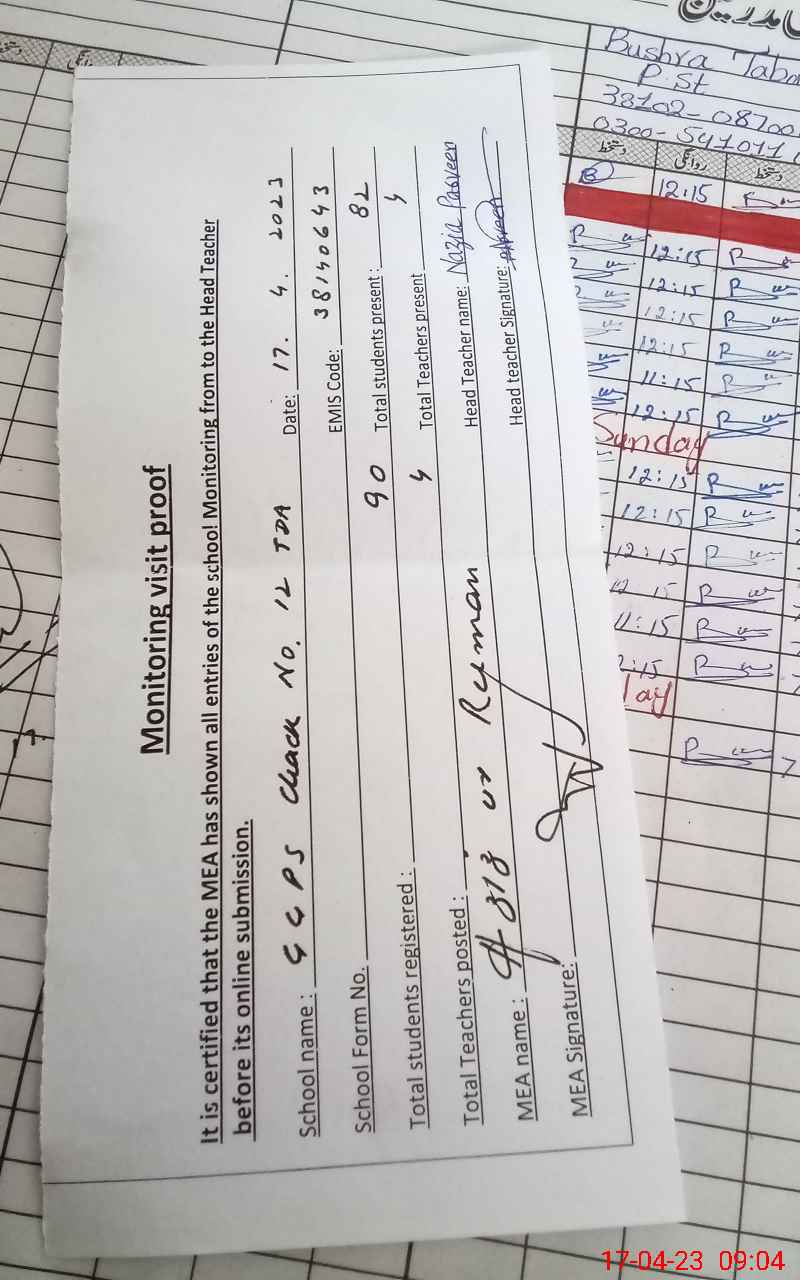 Monitoring visit proof
It is certified that the MEA has shown all entries of the school Monitoring from to the Head Teacher
before its online submission.
School name : G G P S Chack No. 12 TDA Date: 17. 4. 2023
School Form No. EMIS Code: 38140643
Total students registered : 90 Total students present : 82
Total Teachers posted : 4 Total Teachers present 4
MEA name : ur Rehman Head Teacher name: Nazia Parveen
MEA Signature: Head teacher Signature:
Bushra
P.St
38102-08700
0300-541011
دستخط روانگی دستخط
12:15
12:15
12:15
12:15
12:15
11:15
12:15
Sunday
12:15
12:15
12:15
12:15
11:15
2:15
day
17-04-23 09:04